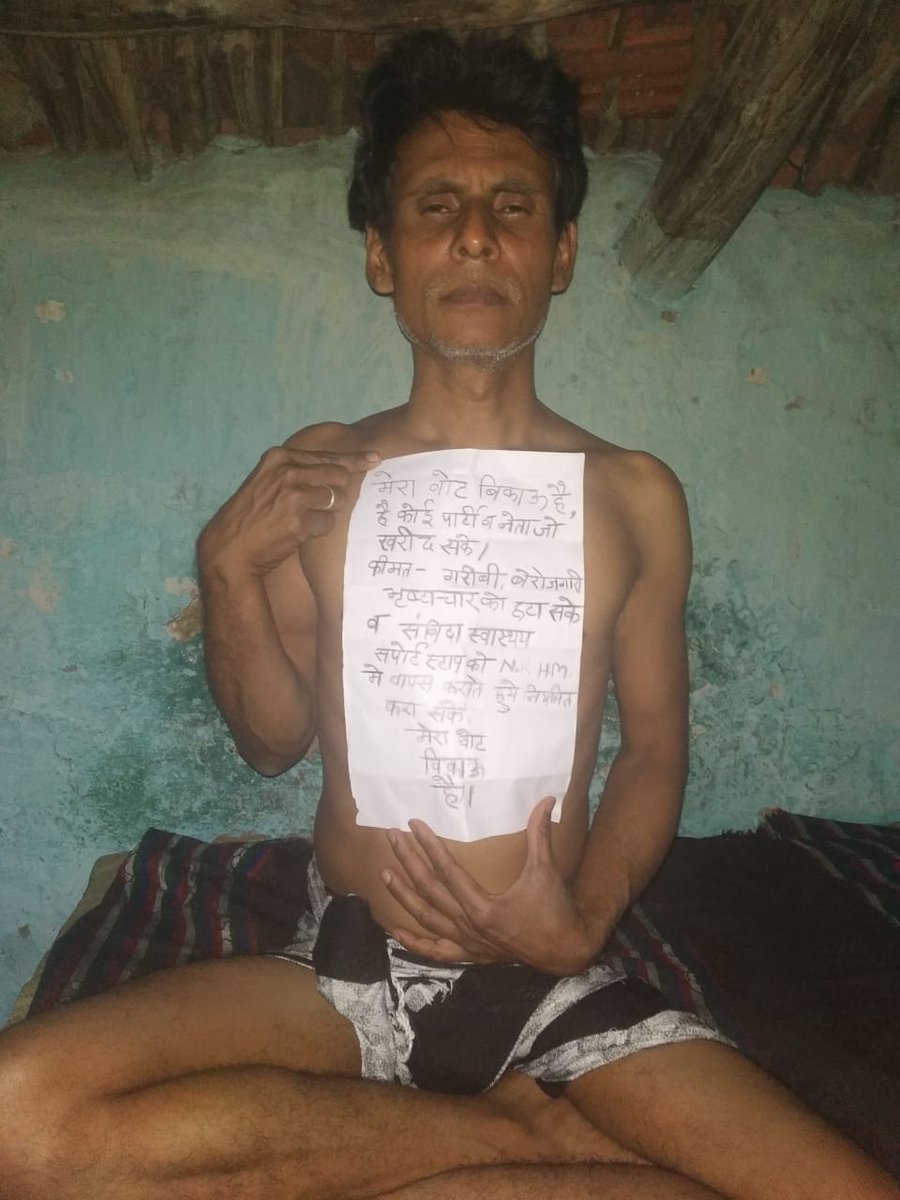 मेरा वोट बिकाऊ है,
है कोई पार्टी व नेता जो
खरीद सके।
कीमत - गरीबी, बेरोजगारी
भ्रष्टाचार को हटा सके
व संविदा स्वास्थय
सपोर्ट स्टाफ को N.R.H.M.
मे वापस कराते हुये नियमित
करा सके
मेरा वोट
बिकाऊ
है।